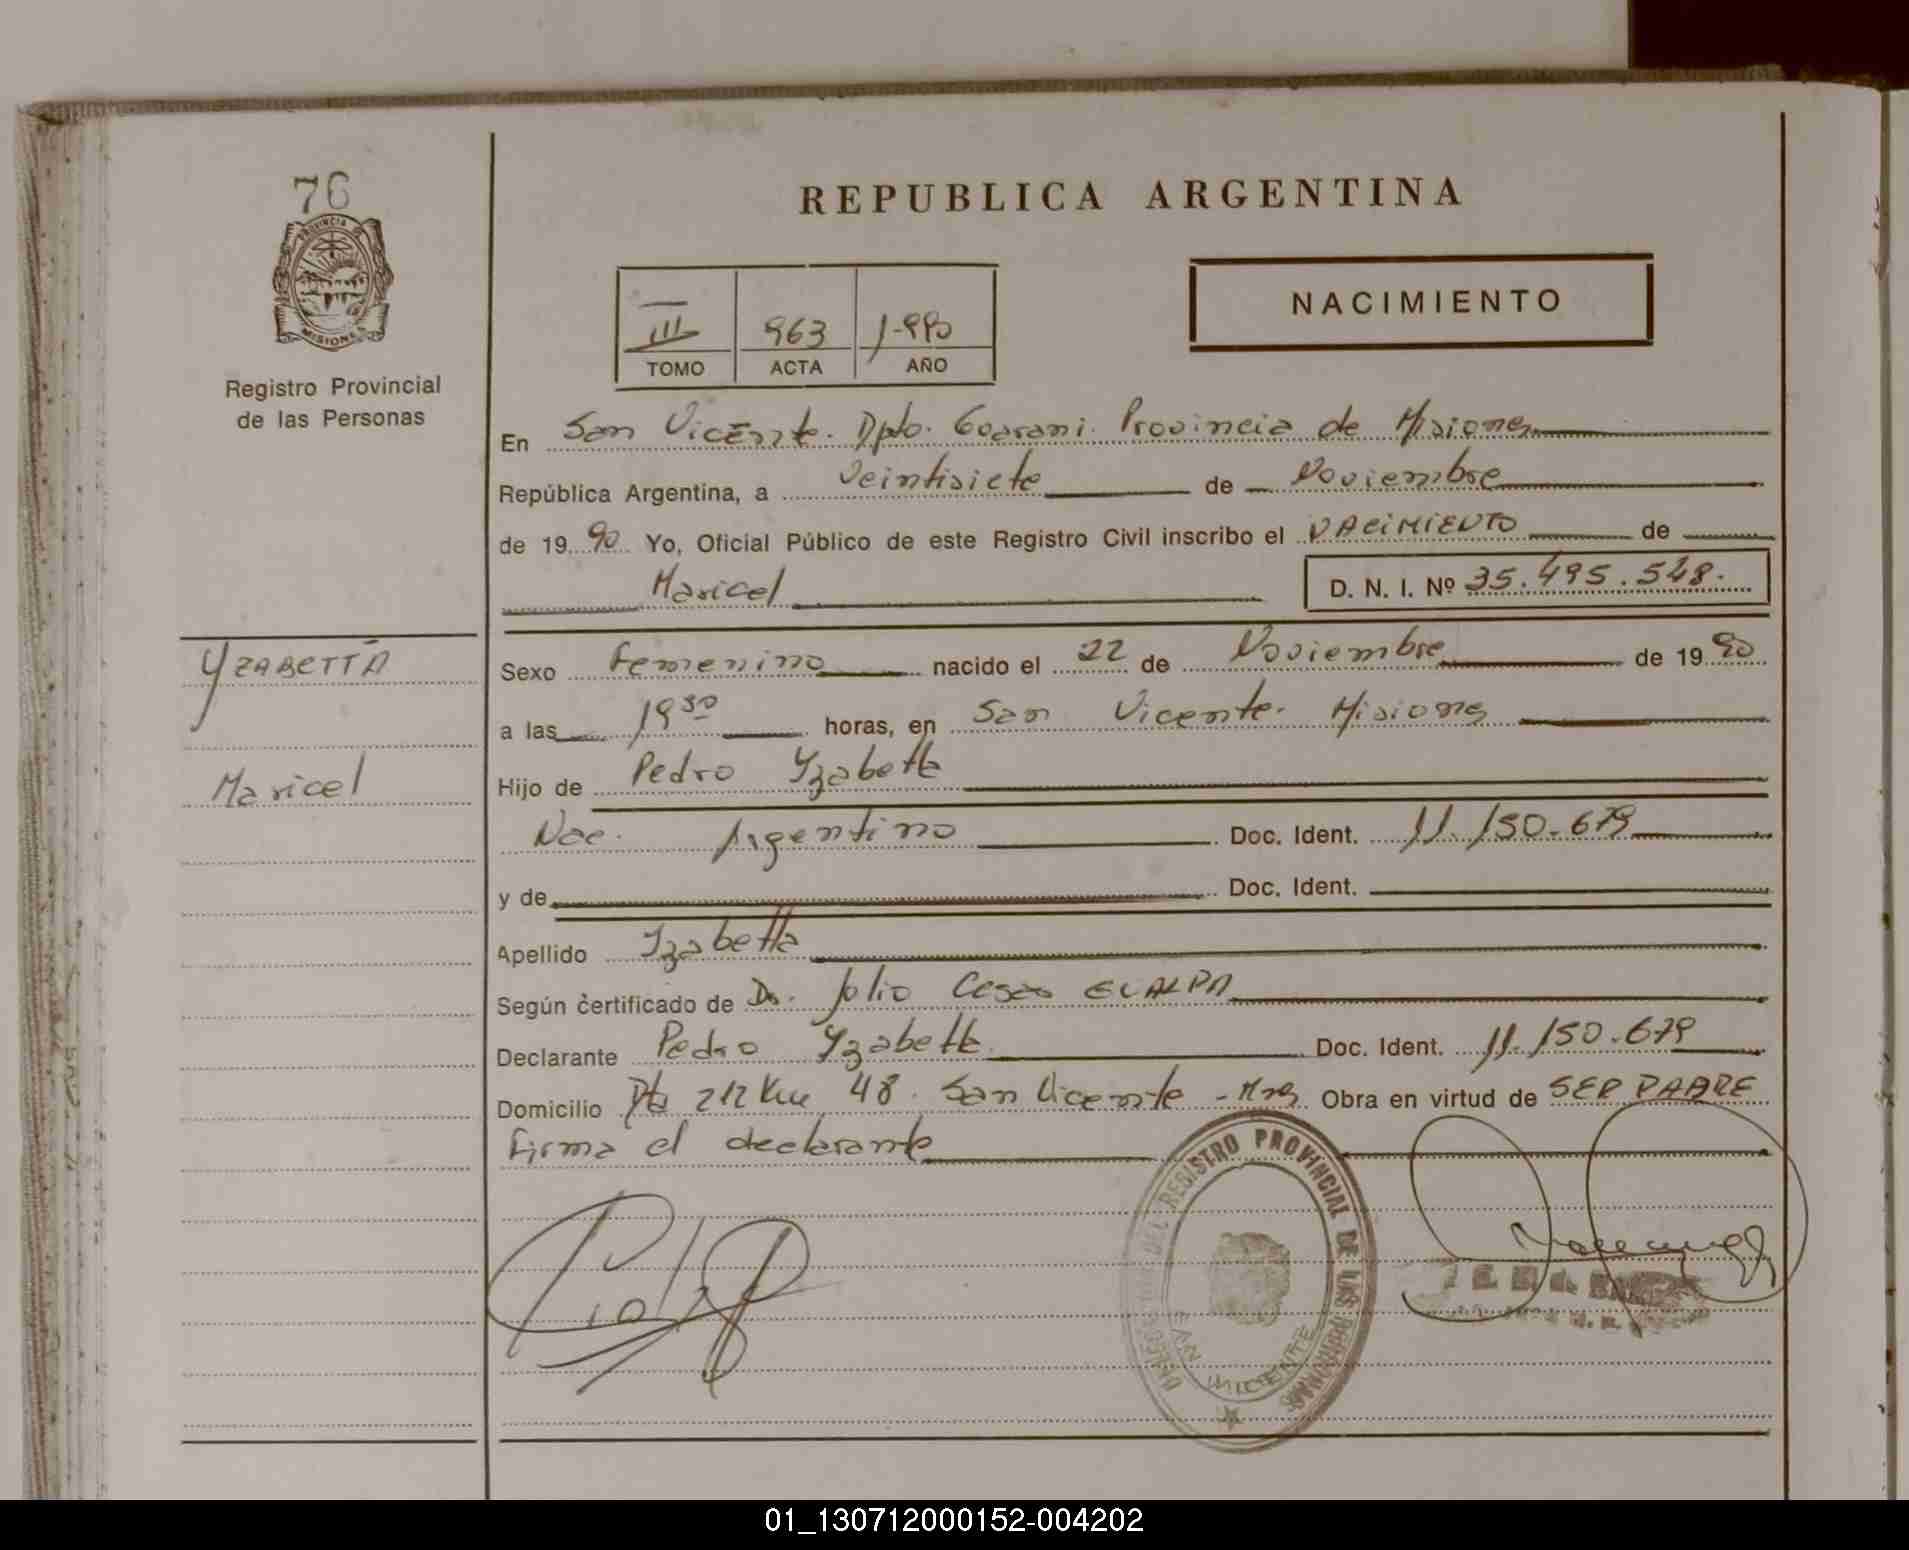 76
PROVINCIA DE
MISIONES
Registro Provincial
de las Personas
REPUBLICA ARGENTINA
NACIMIENTO
III 963 1-990
TOMO ACTA AÑO
En San Vicente. Dpto. Guarani. Provincia de Misiones
República Argentina, a Veintisiete de Noviembre
de 19 90 Yo, Oficial Público de este Registro Civil inscribo el NACIMIENTO de
Maricel D. N. I. Nº 35.495.548.
YZABETTA
Maricel
Sexo Femenino nacido el 22 de Noviembre de 19 90
a las 19 30 horas, en San Vicente. Misiones
Hijo de Pedro Yzabetta
Nac. Argentino Doc. Ident. 11.150.679
y de Doc. Ident.
Apellido Yzabetta
Según certificado de Dr. Julio Cesar
Declarante Pedro Yzabetta Doc. Ident. 11.150.679
Domicilio 212 Km 48. San Vicente - Mnes Obra en virtud de SER PADRE
Firma el declarante
DEL REGISTRO PROVINCIAL DE LAS PERSONAS
SAN VICENTE
01_130712000152-004202